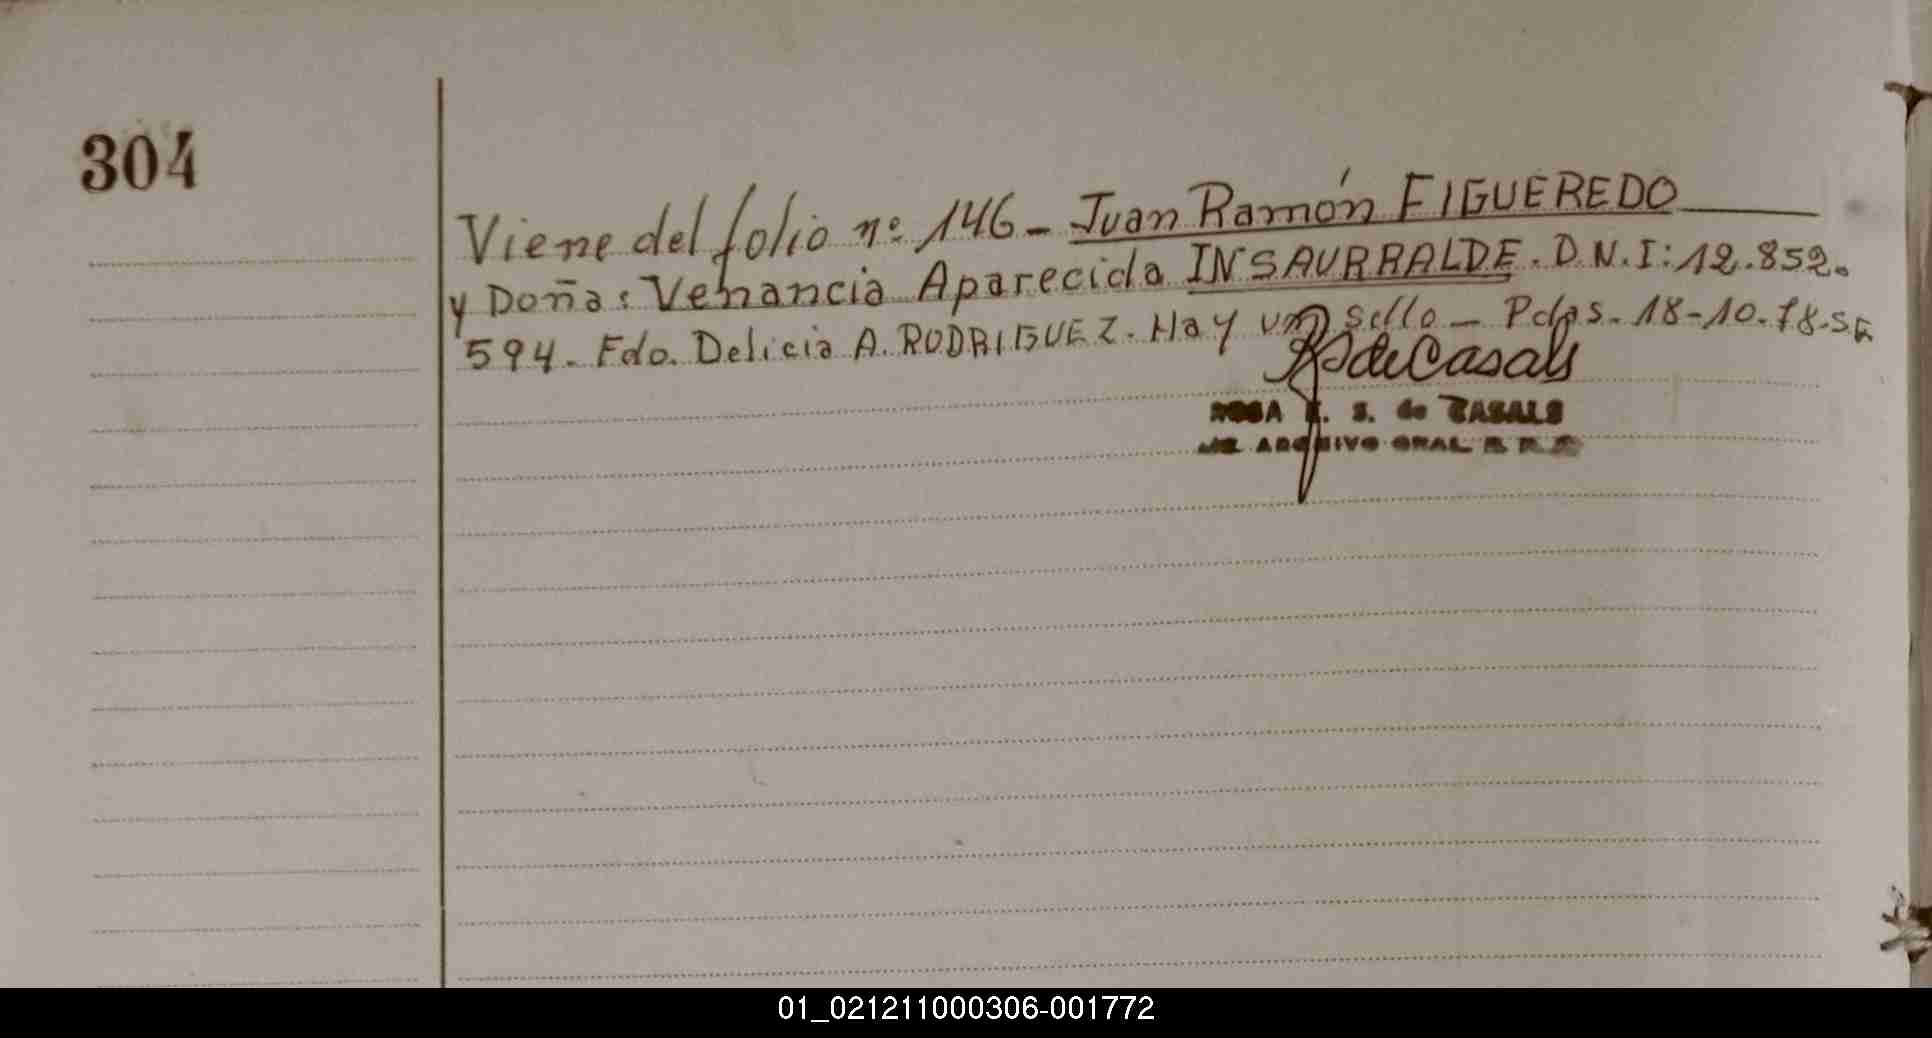 304
Viene del folio nº 146 - Juan Ramón FIGUEREDO
y Doña: Venancia Aparecida INSAURRALDE. D.N.I: 12.852.
594. Fdo. Delicia A. RODRIGUEZ. Hay un sello - Pdas. 18-10-78.
R S de Casals
ROSA E. S. de CASALS
ARCHIVO GRAL. R. P.
01_021211000306-001772